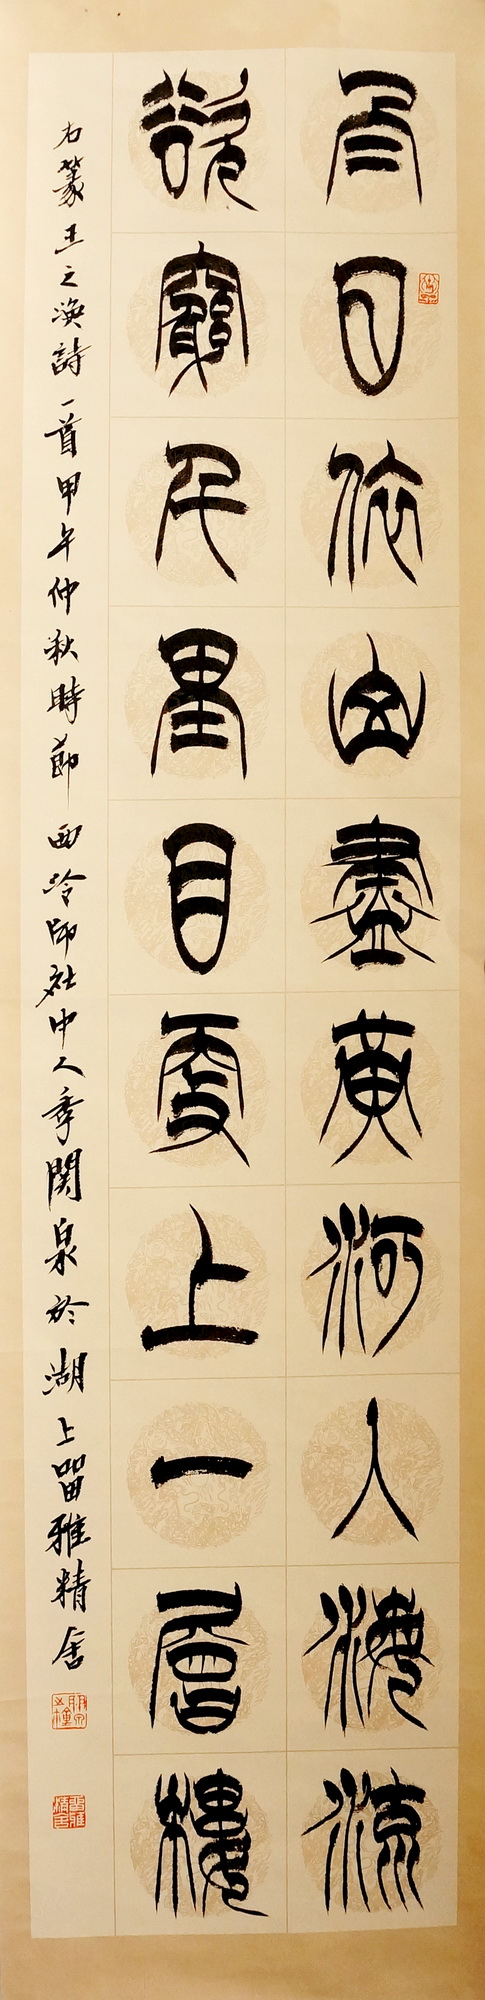 白日依山盡黃河入海流
欲窮千里目更上一層樓
右篆王之渙詩一首甲午仲秋時節西泠印社中人季關泉於湖上留雅精舍